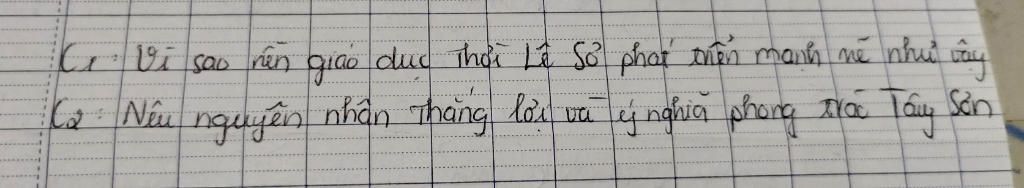 C1: Vì sao nền giáo dục thời Lê Sơ phát triển mạnh mẽ như vậy
C2: Nêu nguyên nhân thắng lợi và ý nghĩa phong trào Tây Sơn